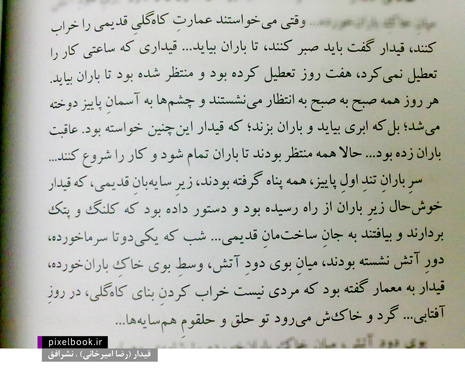 وقتی می‌خواستند عمارتِ کاه‌گلیِ قدیمی را خراب
کنند، قیدار گفت باید صبر کنند، تا باران بیاید... قیداری که ساعتی کار را
تعطیل نمی‌کرد، هفت روز تعطیل کرده بود و منتظر شده بود تا باران بیاید.
هر روز همه صبح به صبح به انتظار می‌نشستند و چشم‌ها به آسمانِ پاییز دوخته
می‌شد؛ بل‌که ابری بیاید و باران بزند؛ که قیدار این‌چنین خواسته بود. عاقبت
باران زده بود... حالا همه منتظر بودند تا باران تمام شود و کار را شروع کنند...
سرِ بارانِ تندِ اولِ پاییز، همه پناه گرفته بودند، زیرِ سایه‌بانِ قدیمی، که قیدار
خوش‌حال زیرِ باران از راه رسیده بود و دستور داده بود که کلنگ و پتک
بردارند و بیافتند به جانِ ساخت‌مانِ قدیمی... شب که یکی‌دوتا سرماخورده،
دورِ آتش نشسته بودند، میانِ بوی دودِ آتش، وسطِ بوی خاکِ باران‌خورده،
قیدار به معمار گفته بود که مردی نیست خراب کردنِ بنای کاه‌گلی، در روزِ
آفتابی... گرد و خاک‌ش می‌رود تو حلق و حلقومِ هم‌سایه‌ها...
pixelbook.ir
قیدار (رضا امیرخانی) . نشرافق